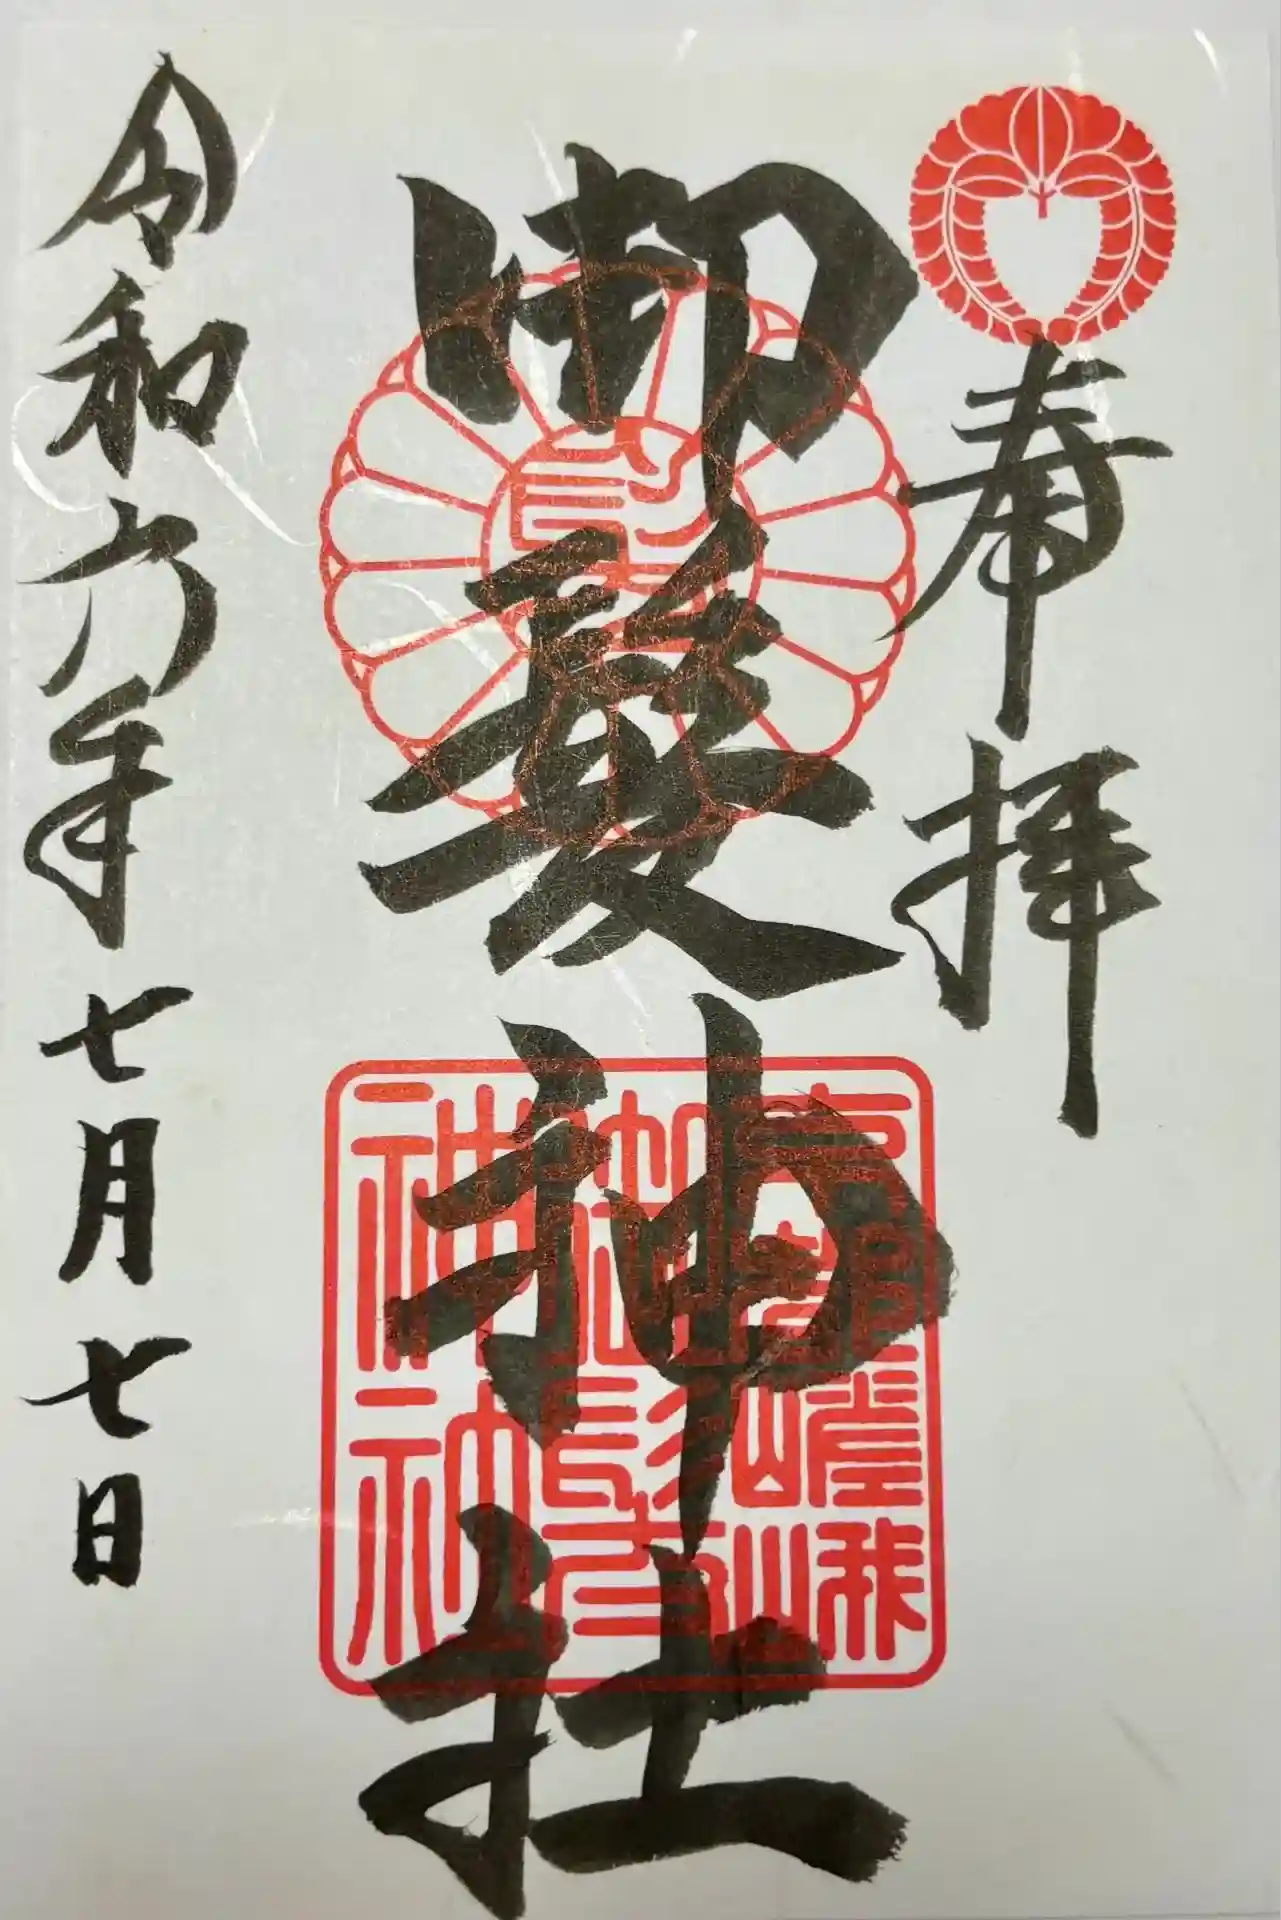 奉拝
御髪神社
嵯峨
御髪
神社
令和六年七月七日